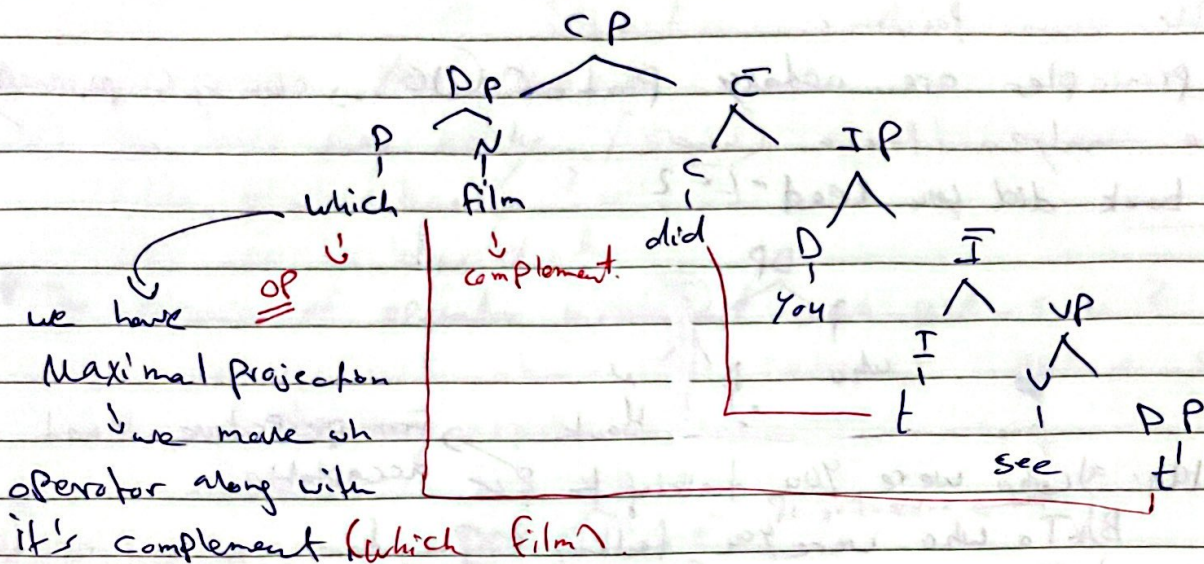 CP
DP C̅
P N C IP
which film did D I̅
OP complement. you I VP
we have t V DP
Maximal projection see t'
we move wh
operator along with
it's complement (which film).